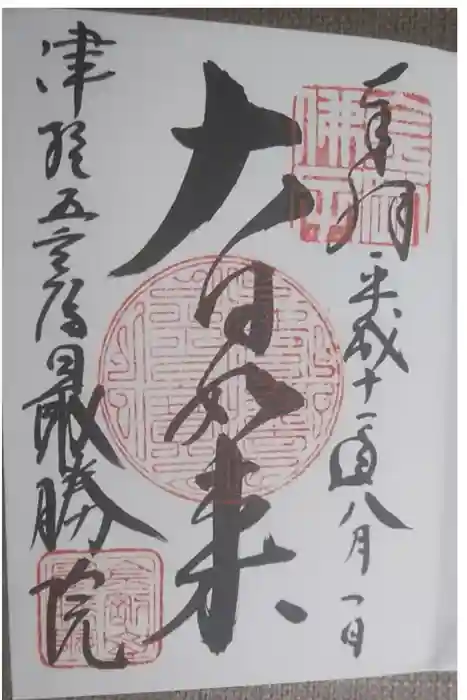 奉拝 平成十一 八月一日
大日如来
津軽五重塔 最勝院